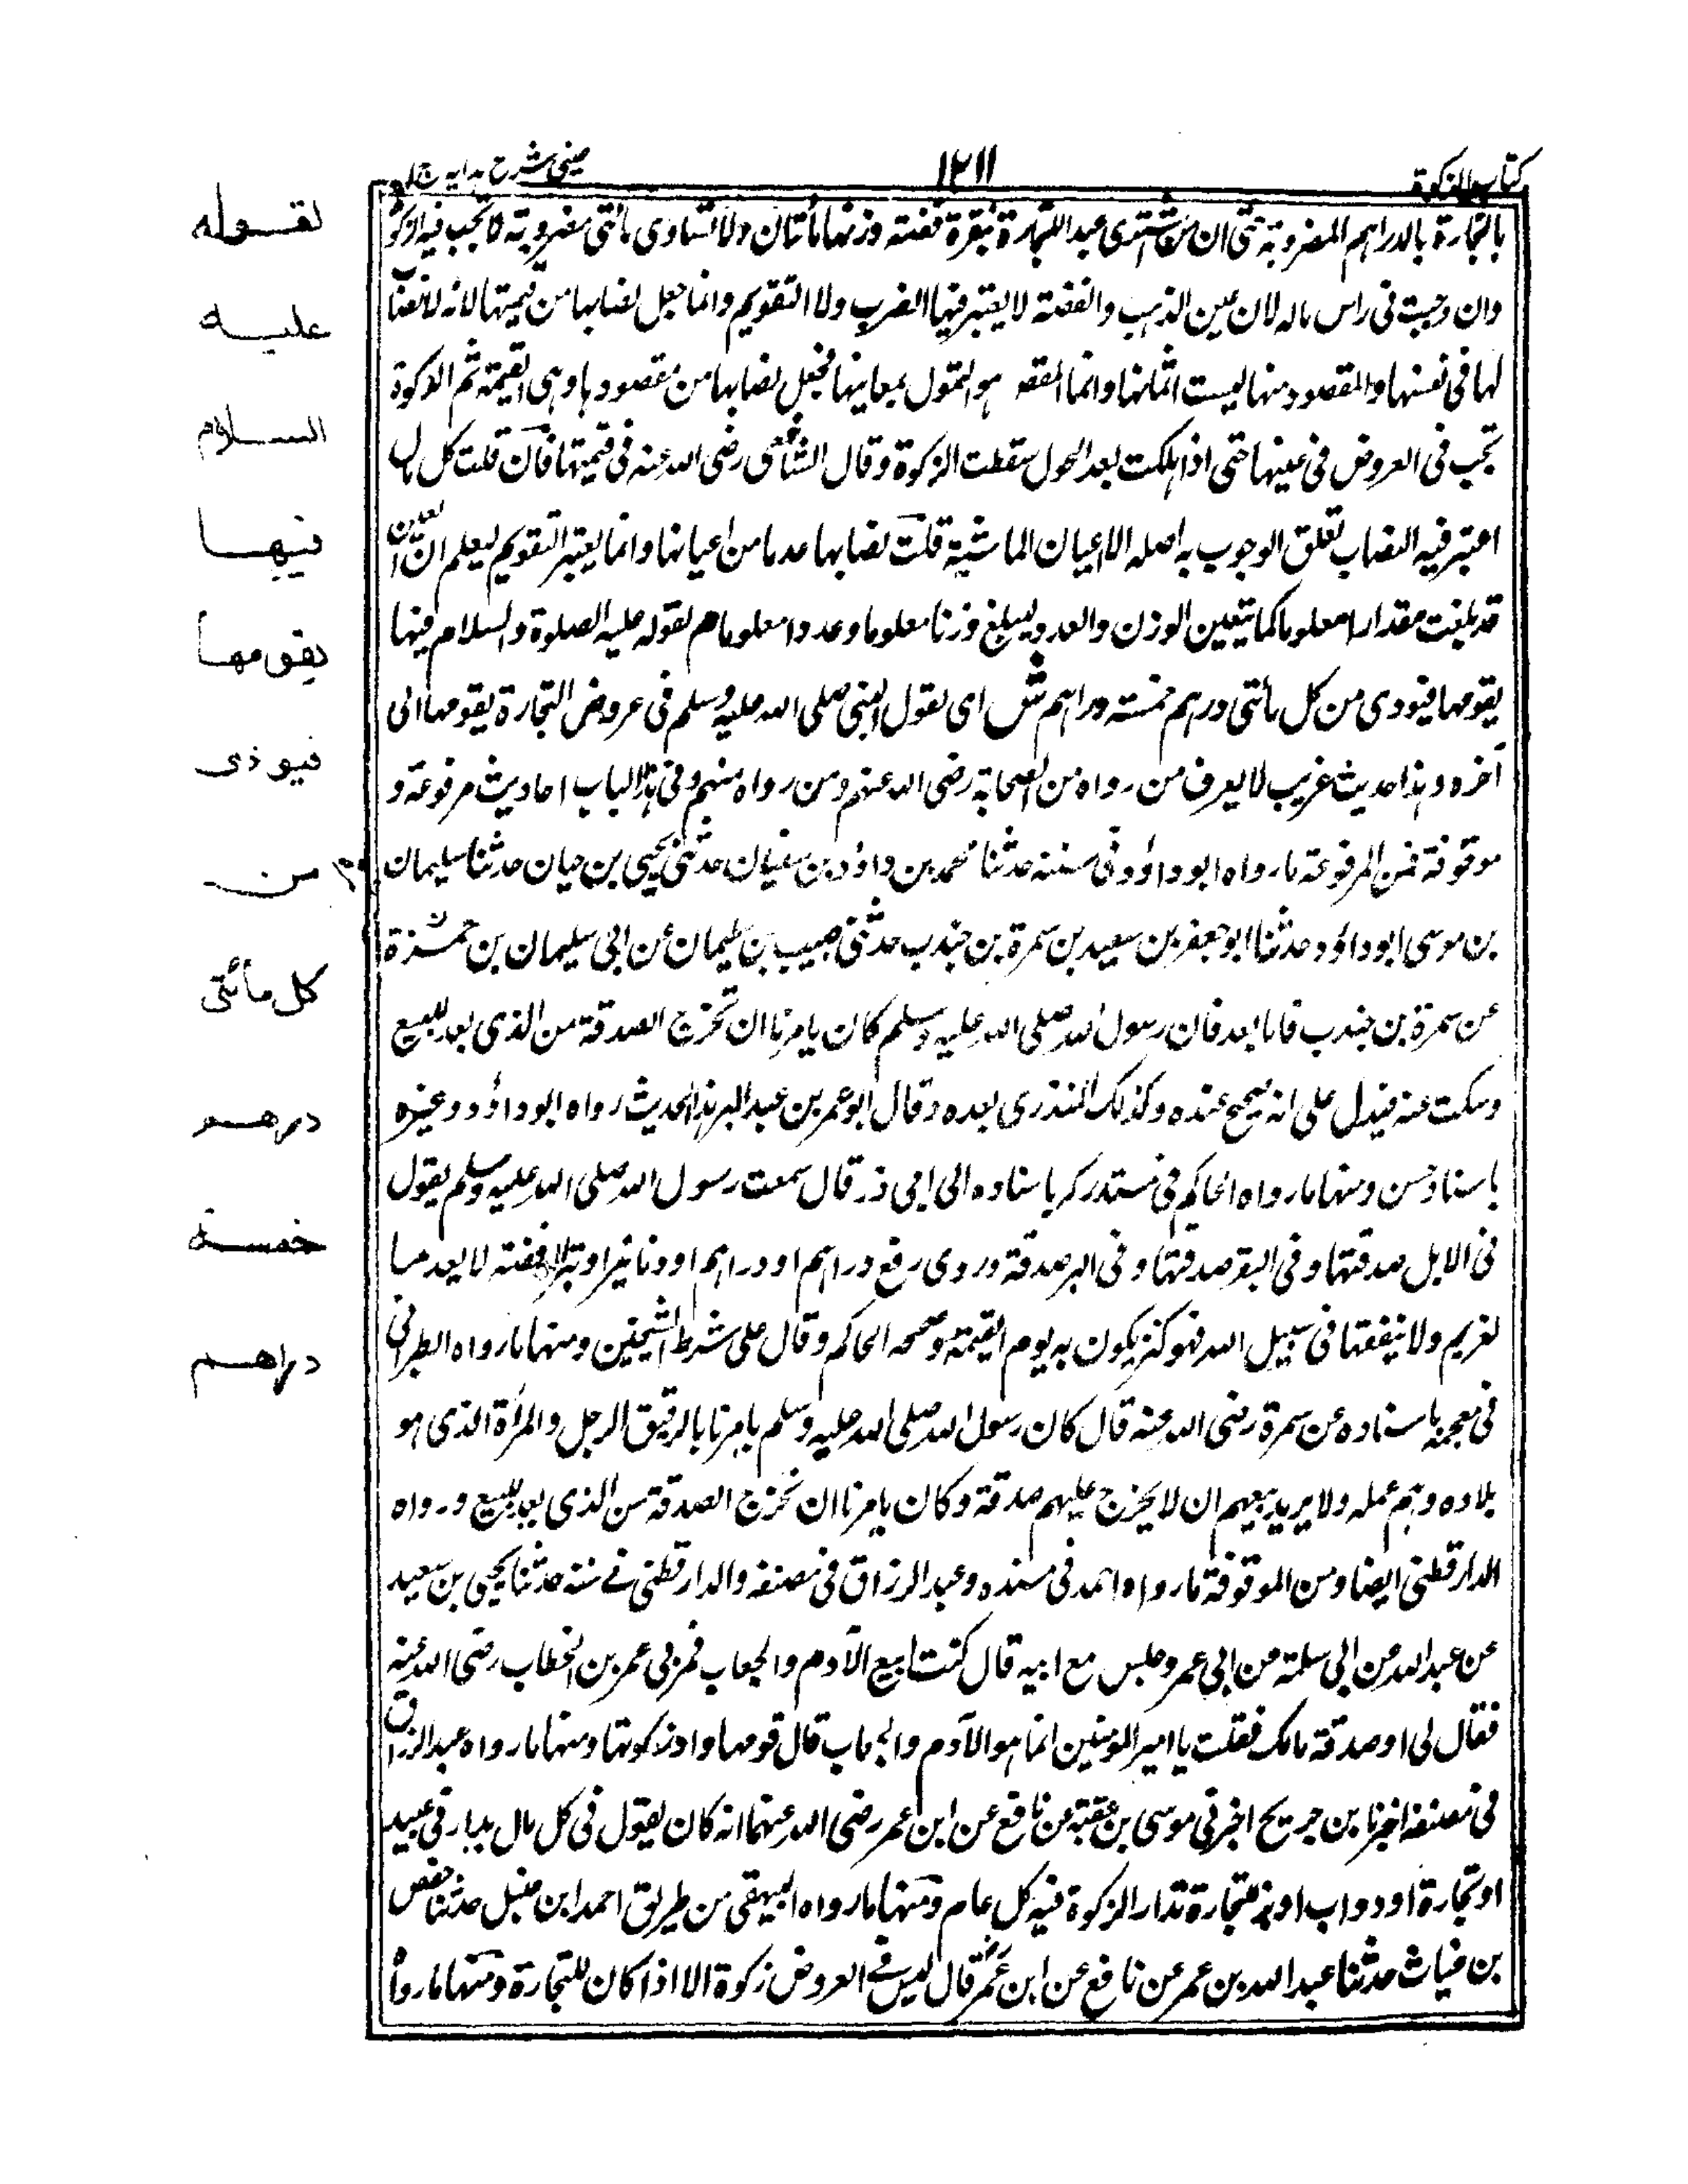 كتاب الزكوة
١٢١١
عينى شرح هدايه ج
بالتجارة بالدراهم المضروبة حتى ان من اشترى عبدا للتجارة بنقرة فضته وزنها مأتان ولا تساوى مأتى مضروبة لا تجب فيه الزكوة
وان وجبت فى راس ماله لان عين الذهب والفضته لا يعتبر فيها الضرب ولا التقويم وانما جعل نصابها من قيمتها لانه لا نصاب
لها فى نفسها والمقصود منها ليست اثمانها وانما المقصد هو التمول بمعاينها فجعل نصابها من مقصودها وهى القيمة ثم الزكوة
تجب فى العروض فى عينها حتى اذا هلكت بعد الحول سقطت الزكوة وقال الشافعى رضى الله عنه فى قيمتها فان قلت كل مال
اعتبر فيه النصاب تعلق الوجوب به اصله الاعيان الماشية قلت نصابها عدما من اعيانها وانما يعتبر التقويم ليعلم ان العين
قد بلغت مقدارا معلوما كما يتعين الوزن والعدد ليبلغ وزنا معلوما وعددا معلوما م لقوله عليه الصلوة والسلام فيها
يقومها فيؤدى من كل مأتى درهم خمسته دراهم ش اى بقول النبى صلى الله عليه وسلم فى عروض التجارة يقومها الى
آخره وهذا حديث غريب لا يعرف من رواه من الصحابة رضى الله عنهم ومن رواه منهم وفى هذا الباب احاديث مرفوعة و
موقوفة فمن المرفوعة ما رواه ابو داؤد فى سننه حدثنا محمد بن داؤد بن سفيان حدثنى يحيى بن حيان حدثنا سليمان
بن موسى ابو داؤد حدثنا ابو جعفر بن سعيد بن سمرة بن جندب حدثنى حبيب بن سليمان عن ابى سليمان بن حمزة
عن سمرة بن جندب فاما بعد فان رسول الله صلى الله عليه وسلم كان يامرنا ان تخرج الصدقة من الذى يعد للبيع
وسكت عنه فيدل على انه صحيح عنده وكذلك المنذرى بعده وقال ابو عمر بن عبد البر هذا الحديث رواه ابو داؤد وغيره
باسناد حسن ومنها ما رواه الحاكم فى مستدركه باسناده الى ابى ذر قال سمعت رسول الله صلى الله عليه وسلم يقول
فى الابل صدقتها وفى البقر صدقتها وفى البر صدقة وروى رفع دراهم او دراهم او دنانير او تبرا او فضته لا يعدها
لغريم ولا ينفقها فى سبيل الله فهو كنز يكون به يوم القيمة وصححه الحاكم وقال على شرط الشيخين ومنها ما رواه الطبرانى
فى معجمه باسناده عن سمرة رضى الله عنه قال كان رسول الله صلى الله عليه وسلم يامرنا بالرقيق الرجل والمرأة الذى هو
بلاده وهم عمله ولا يريد بيعهم ان لا يخرج عليهم صدقة وكان يامرنا ان نخرج الصدقة من الذى يعد للبيع ورواه
الدارقطنى ايضا ومن الموقوفة ما رواه احمد فى مسنده وعبد الرزاق فى مصنفه والدارقطنى فے سننه حدثنا يحيى بن سعيد
عن عبد الله عن ابى سلمة من ابى عمرو حلبس مع ابيه قال كنت ابيع الآدم والجعاب فمر بى عمر بن الخطاب رضى الله عنه
فقال لى او صدقة مالك فقلت يا امير المومنين انما هو الآدم والجعاب قال قومها واد زكوتها ومنها ما رواه عبد الرزاق
فى مصنفه اخبرنا بن جريج اخبرنى موسى بن عقبة عن نافع عن ابن عمر رضى الله عنهما انه كان يقول فى كل مال يدار فى عبيد
او تجارة او دواب او بز للتجارة تدار الزكوة فيه كل عام ومنها ما رواه البيهقى من طريق احمد ابن حنبل حدثنا حفص
بن غياث حدثنا عبد الله بن عمر عن نافع عن ابن عمر قال ليس فے العروض زكوة الا اذا كان للتجارة ومنها ما رواه
لقوله
عليه
السلام
فيها
يقومها
فيوذى
من
كل مأتى
درهم
خمسة
دراهم